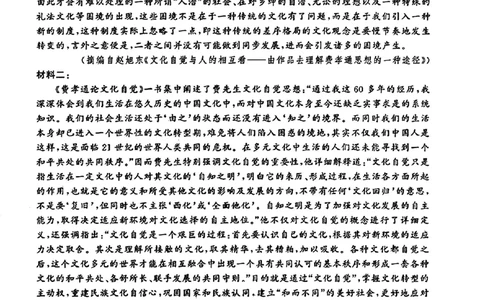 面此才会有难以处理的一种所谓“人治”的社会、在野乡绅的自治、无讼的理想以及一种特殊的
礼法文化等困境的出现,这些困境不是在于一种传统的文化有了问题,而是在于我们引入一种
新的制度,这种制度实际上忽略了一点,即这种传统的差序格局的文化观念是要慢节奏地发生
转变的,言外之意便是,二者之间并没有可能做到同步发展,进而会引发诸多的困境产生。
(摘编自赵旭东《文化自觉与人的相互看——由作品去理解费孝通思想的一种途径》)
材料二:
《费孝通论文化自觉》一书集中阐述了费先生文化自觉思想:“通过我这60多年的经历,我
深深体会到我们生活在悠久历史的中国文化中,而对中国文化本身至今还缺乏实事求是的系统
知识。我们的社会生活还处于‘由之’的状态而还没有进入‘知之’的境界。而同时我们的生活
本身却已进入一个世界性的文化转型期,难免将人们陷入困惑的境地,其实不仅我们中国人是
这样,这是面临21世纪的世界人类共同的危机。在多元文化中生活的人们还未能寻找到一个
和平共处的共同秩序。”因而费先生特别强调文化自觉的重要性,他详细解释道:“文化自觉只是
指生活在一定文化中的人对其文化的‘自知之明’,明白它的来历、形成过程,在生活各方面所起
的作用,也就是它的意义和所受其他文化的影响及发展的方向,不带有任何‘文化回归’的意思,
不是要‘复旧’,但同时也不主张‘西化’或‘全面他化’。自知之明是为了加强对文化发展的自主
能力,取得决定适应新环境对文化选择的自主地位。”他不仅对文化自觉的概念进行了详细定
义,还强调指出:“文化自觉是一个艰巨的过程:首先要认识自己的文化,根据其对新环境的适应
力决定取舍。其次是理解所接触的文化,取其精华,去其糟粕,加以吸收。各种文化都自觉之
后,这个文化多元的世界才能在相互融合中出现一个具有共同认可的基本秩序和形成一套各种
文化的和平共处、各舒所长、联手发展的共同守则。”目的就是通过“文化自觉”,掌握文化转型的
主动权,重建民族文化自信心,巩固国家和民族认同,建立“和而不同”的美好社会,更好地应对